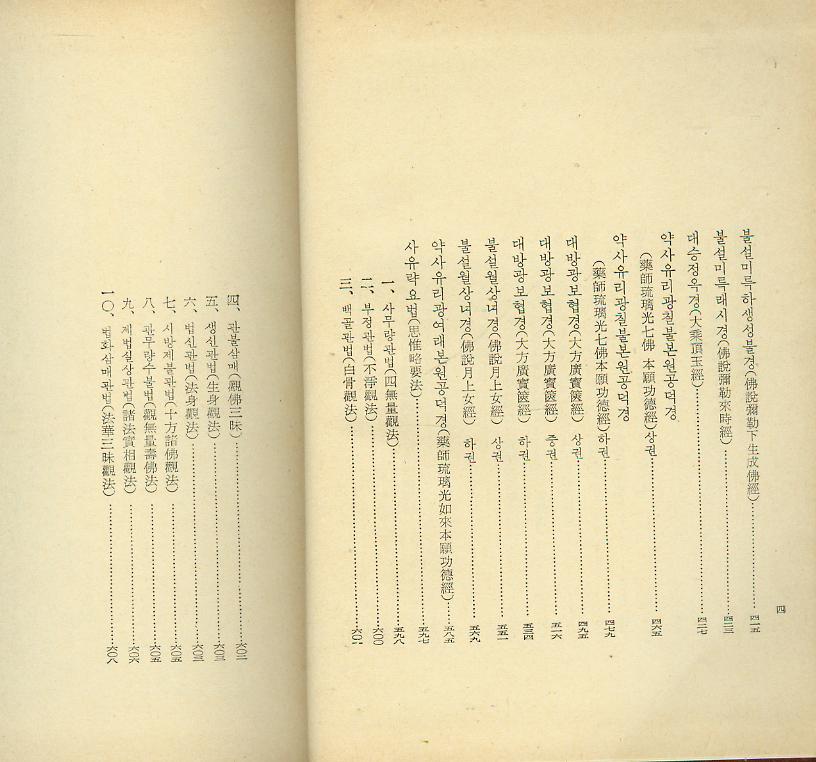 四
불설미륵하생성불경(佛說彌勒下生成佛經)……四一五
불설미륵래시경(佛說彌勒來時經)……四二三
대승정옥경(大乘頂玉經)……四二七
약사유리광칠불본원공덕경
(藥師琉璃光七佛 本願功德經)상권……四六五
약사유리광칠불본원공덕경
(藥師琉璃光七佛本願功德經)하권……四七九
대방광보협경(大方廣寶篋經) 상권……四九五
대방광보협경(大方廣寶篋經) 중권……五一六
대방광보협경(大方廣寶篋經) 하권……五三四
불설월상녀경(佛說月上女經) 상권……五五一
불설월상녀경(佛說月上女經) 하권……五六九
약사유리광여래본원공덕경(藥師琉璃光如來本願功德經)……五八五
사유략요법(思惟略要法)……五九七
一、사무량관법(四無量觀法)……五九八
二、부정관법(不淨觀法)……六〇〇
三、백골관법(白骨觀法)……六〇一
四、관불삼매(觀佛三昧)……六〇二
五、생신관법(生身觀法)……六〇三
六、법신관법(法身觀法)……六〇三
七、시방제불관법(十方諸佛觀法)……六〇五
八、관무량수불법(觀無量壽佛法)……六〇五
九、제법실상관법(諸法實相觀法)……六〇六
一〇、법화삼매관법(法華三昧觀法)……六〇八